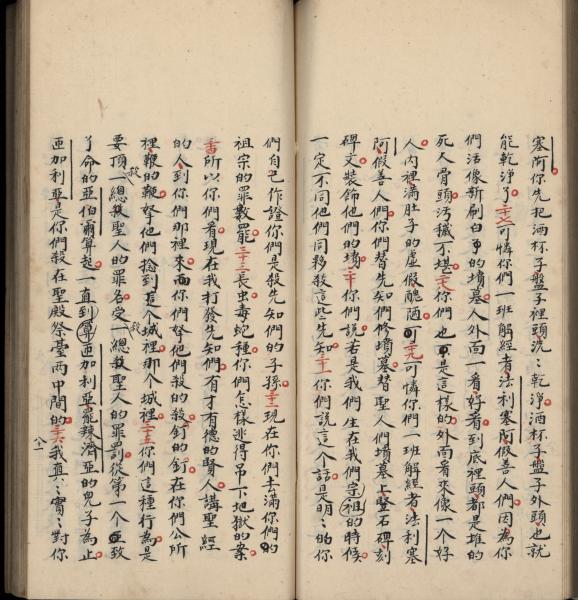 塞阿你先把酒杯子盤子裡頭洗〻乾淨酒杯子盤子外頭也就
能乾淨了二十七可憐你們一班解經者法利塞阿假善人們因為你
們活像新刷白的墳墓人外面一看好看到底裡頭都是堆的
死人骨頭污穢不堪二十八你們也是這樣的外面看來像一個好
人內裡滿肚子的虛假醜陋二十九可憐你們一班解經者法利塞
阿假善人們你們替先知們修墳墓替聖人們墳墓上豎石碑刻
碑文裝飾他們的墳三十你們說若是我們生在我們宗祖的時候
一定不同他們同夥殺這些先知三十一你們說這個話是明〻的你
們自己作證你們是殺先知們的子孫三十二現在你們去滿你們的
祖宗的罪數罷三十三長虫毒蛇種你們怎樣逃得吊下地獄的案
三十四所以你們看現在我打發先知們有才有德的賢人講聖經
的人到你們那裡來而你們拏他們殺的殺釘的釘在你們公所
裡鞭的鞭拏他們捻到這個城裡那個城裡三十五你們這種行為是
要頂一總殺聖人的罪名受一總殺聖人的罪罰從第一個致
了命的亞伯爾算起一直到亞加利亞罷辣濟亞的兒子為止
亞加利亞是你們殺在聖殿祭臺兩中間的三十六我真〻實〻對你